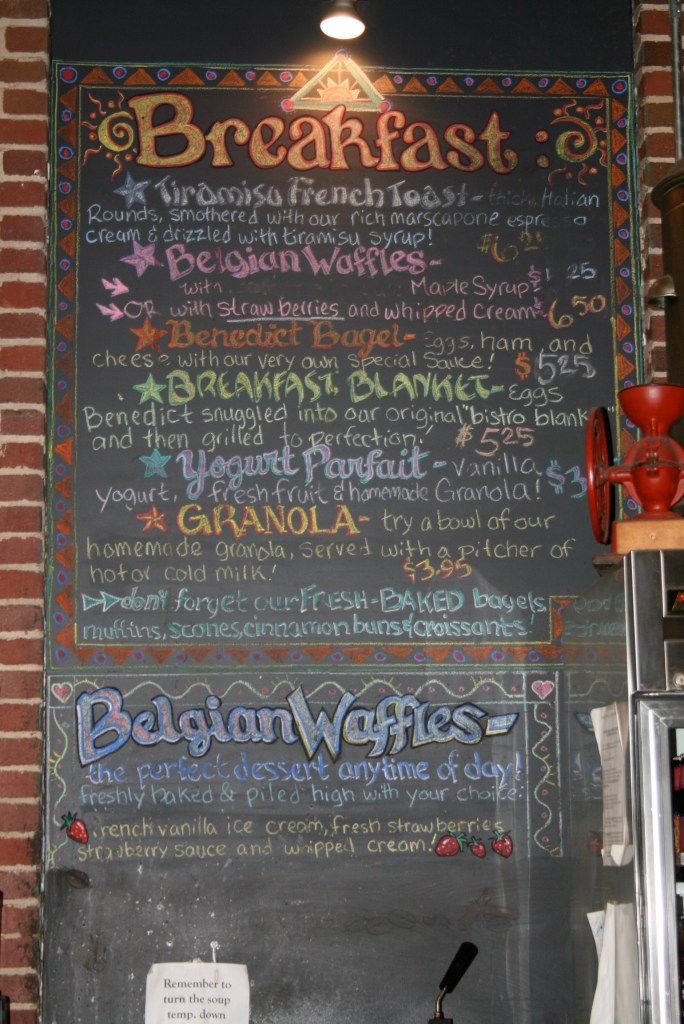 Breakfast:
Tiramisu French Toast - thick Italian
Rounds, smothered with our rich marscapone espresso
cream & drizzled with tiramisu syrup!
Belgian Waffles-
with Maple Syrup 25
OR with strawberries and whipped cream 6.50
Benedict Bagel- Eggs, ham, and
cheese with our very own Special Sauce! $5.25
BREAKFAST BLANKET- Eggs
Benedict snuggled into our original "bistro blank
and then grilled to perfection! $5.25
Yogurt Parfait - vanilla $3
yogurt, fresh fruit & homemade Granola!
GRANOLA- try a bowl of our
homemade granola, served with a pitcher of
hot or cold milk! $3.95
don't forget our FRESH-BAKED bagels
muffins, scones, cinnamon buns & croissants!
Belgian Waffles-
the perfect dessert anytime of day!
freshly baked & piled high with your choice:
french vanilla ice cream, fresh strawberries
strawberry sauce and whipped cream!
Remember to
turn the soup
temp. down